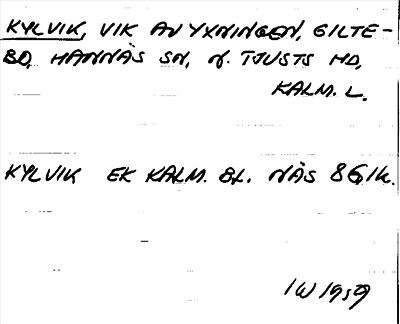 KYLVIK, VIK AV YXNINGEN, GILTE-
BO, HANNÄS SN, N. TJUSTS HD,
KALM. L.
KYLVIK EK KALM. BL. NÄS 86 IK.
IW 1959